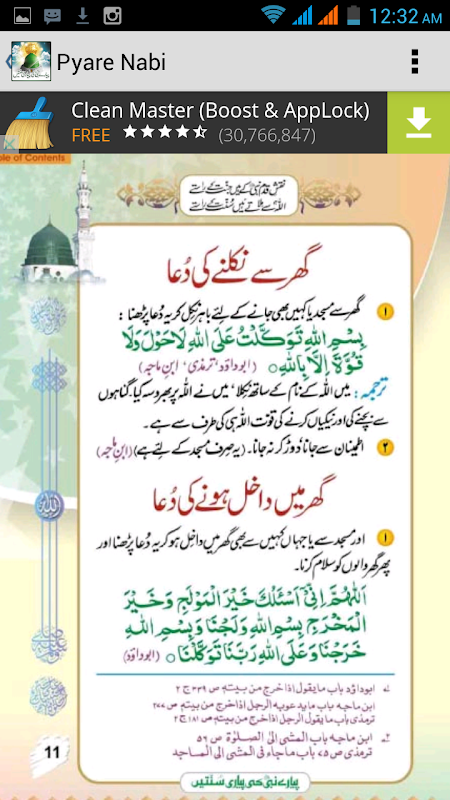 12:32 AM
Pyare Nabi
Clean Master (Boost & AppLock)
FREE (30,766,847)
ble of Contents
نقش قدم نبی کے ہیں جنت کے راستے
اللہ سے ملاتے ہیں سنت کے راستے
گھر سے نکلنے کی دُعا
۱ گھر سے مسجد یا کہیں بھی جانے کے لئے باہر نکل کر یہ دُعا پڑھنا :
بِسْمِ اللهِ تَوَكَّلْتُ عَلَى اللهِ لَاحَوْلَ وَلَا
قُوَّةَ اِلَّا بِاللهِ (ابوداؤد، ترمذی، ابن ماجہ)
ترجمہ: میں اللہ کے نام کے ساتھ نکلا، میں نے اللہ پر بھروسہ کیا۔ گناہوں
سے بچنے کی اور نیکیاں کرنے کی قوّت اللہ ہی کی طرف سے ہے۔
۲ اطمینان سے جانا، دوڑ کر نہ جانا۔ (یہ صرف مسجد کے لئے ہے) (ابن ماجہ)
گھر میں داخل ہونے کی دُعا
۱ اور مسجد سے یا جہاں کہیں سے بھی گھر میں داخل ہو کر یہ دُعا پڑھنا اور
پھر گھر والوں کو سلام کرنا۔
اَللّٰهُمَّ اِنِّيْ اَسْئَلُكَ خَيْرَ الْمَوْلَجِ وَخَيْرَ
الْمَخْرَجِ بِسْمِ اللهِ وَلَجْنَا وَبِسْمِ اللهِ
خَرَجْنَا وَعَلَى اللهِ رَبِّنَا تَوَكَّلْنَا (ابوداؤد)
۱ ابوداؤد باب مایقول اذا خرج من بیتہ ص ۳۳۹ ج ۲
ابن ماجہ باب ماید عوبہ الرجل اذا خرج من بیتہ ص ۲۷۷
ترمذی باب مایقول الرجل اذا خرج من بیتہ ص ۱۸۱ ج ۲
۲ ابن ماجہ باب المشی الی الصلوٰۃ ص ۵۶
ترمذی ص ۷۵ باب ماجاء فی المشی الی المساجد
11
پیارے نبی کی پیاری سنتیں